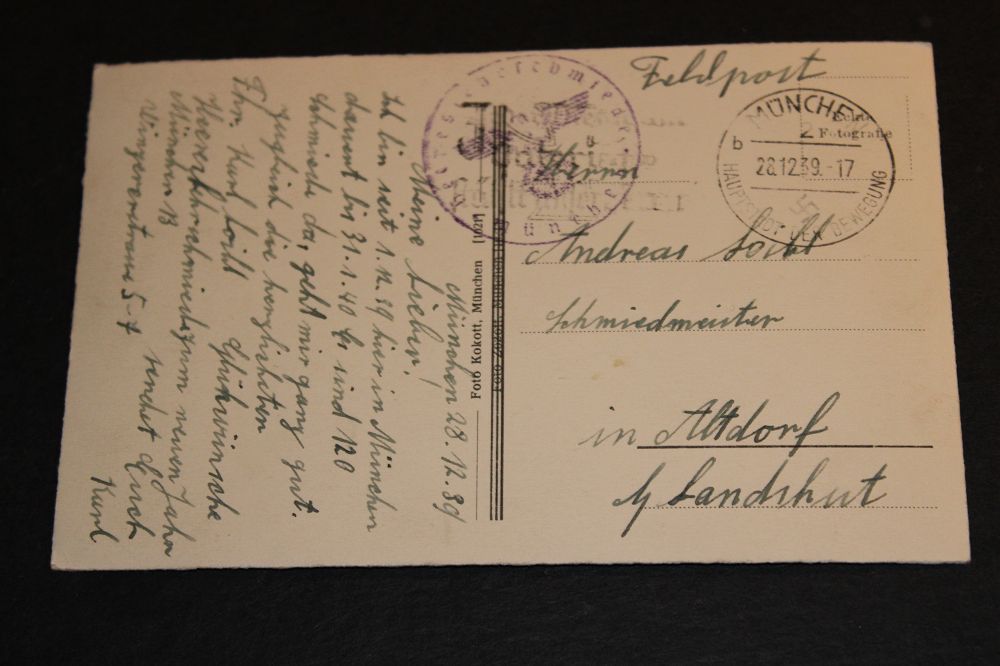 Feldpost
MÜNCHEN
2
b
28.12.39.-17
HAUPTSTADT DER BEWEGUNG
Echte
Fotografie
Herrn
Andreas Loibl
Schmiedmeister
in Altdorf
b/ Landshut
Foto Kokott, München [1021]
München 28.12.39
Meine Lieben!
Ich bin seit 1.12.39 hier in München
dauert bis 31.1.40 Es sind 120
Schmiede da, geht mir ganz gut.
Zugleich die herzlichsten
Glückwünsche
zum neuen Jahr
sendet Euch
Karl
Fhn. Karl Loibl
Heereslehrschmiede
München 13
Winzererstrasse 5-7